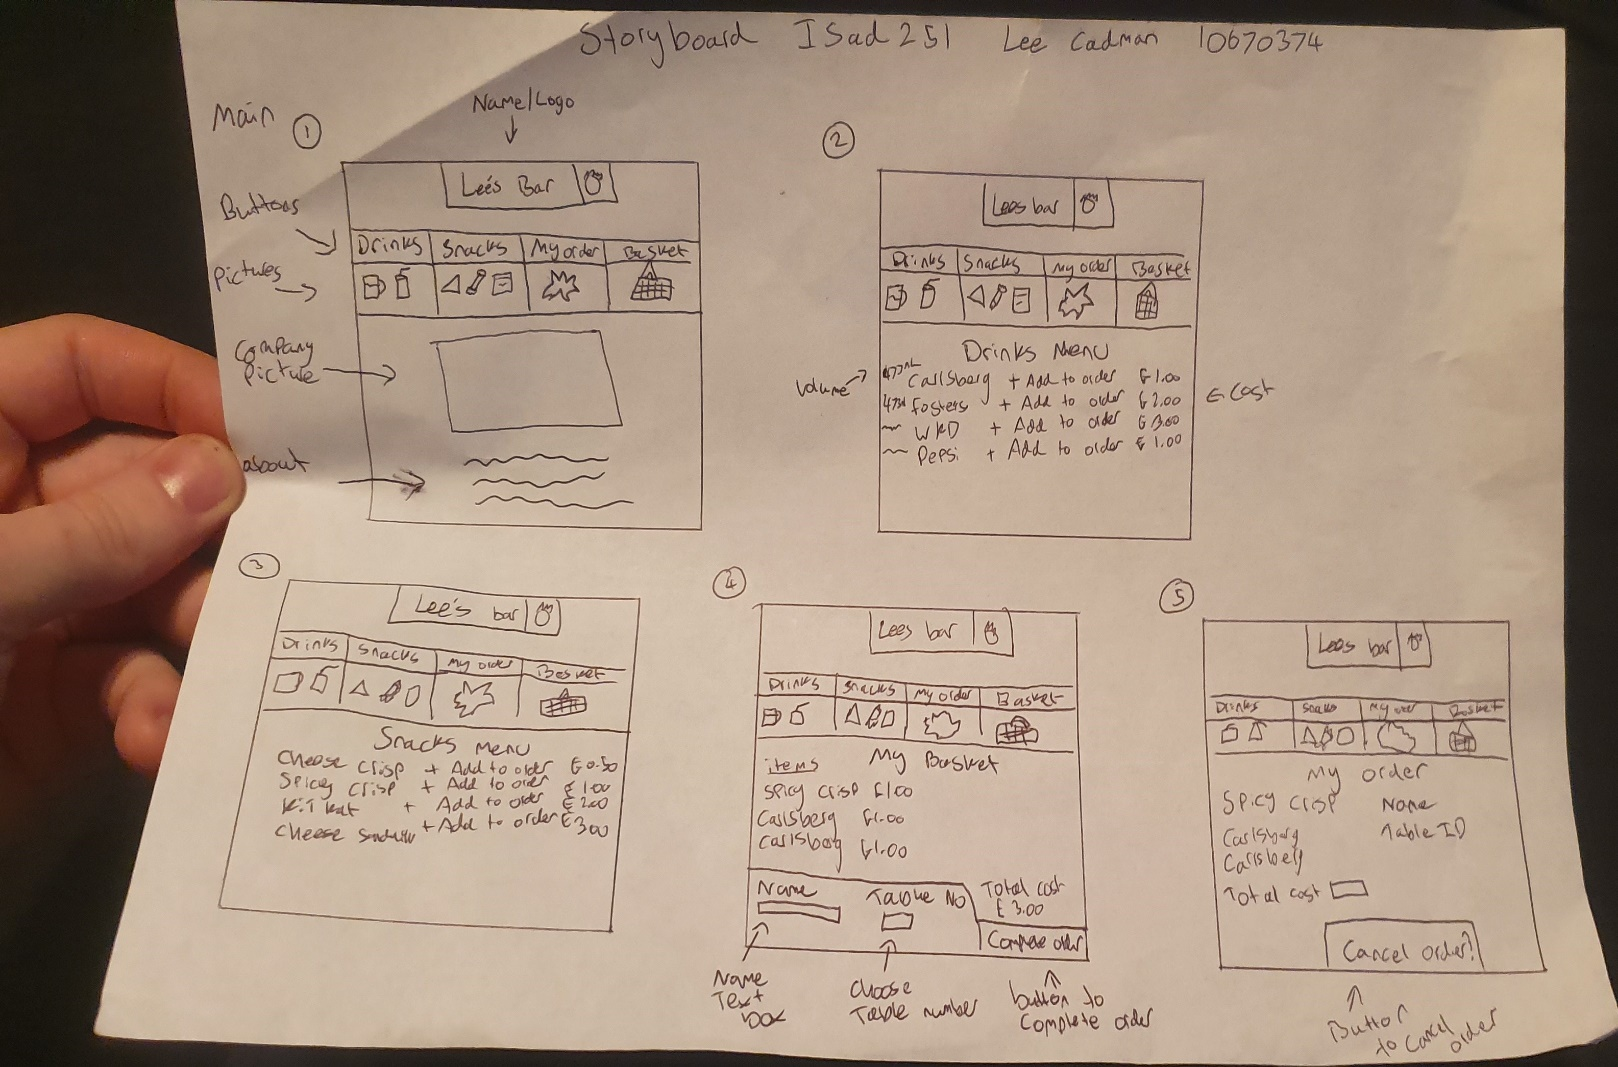 Storyboard ISad251 Lee Cadman 10670374
Main
1
Name/Logo
Lee's Bar
Buttons
Drinks Snacks My order Basket
Pictures
Company
Picture
about
2
Lees bar
Drinks Snacks My order Basket
Drinks Menu
Volume
Carlsberg + Add to order £1.00
Fosters + Add to order £2.00
WKD + Add to order £3.00
Pepsi + Add to order £1.00
Cost
3
Lee's bar
Drinks Snacks My order Basket
Snacks Menu
Cheese crisp + Add to order £0.50
Spicy crisp + Add to order £1.00
Kit kat + Add to order £2.00
Cheese + Add to order £3.00
4
Lees bar
Drinks Snacks My order Basket
items My Basket
Spicy crisp £1.00
Carlsberg £1.00
Carlsberg £1.00
Name Table No Total cost
£3.00
Complete order
Name
Text
box
Choose
Table number
button to
Complete order
5
Lees bar
Drinks Snacks My order Basket
My order
Spicy crisp Name
Carlsberg Table ID
Carlsberg
Total cost
Cancel order?
Button
to Cancel
order